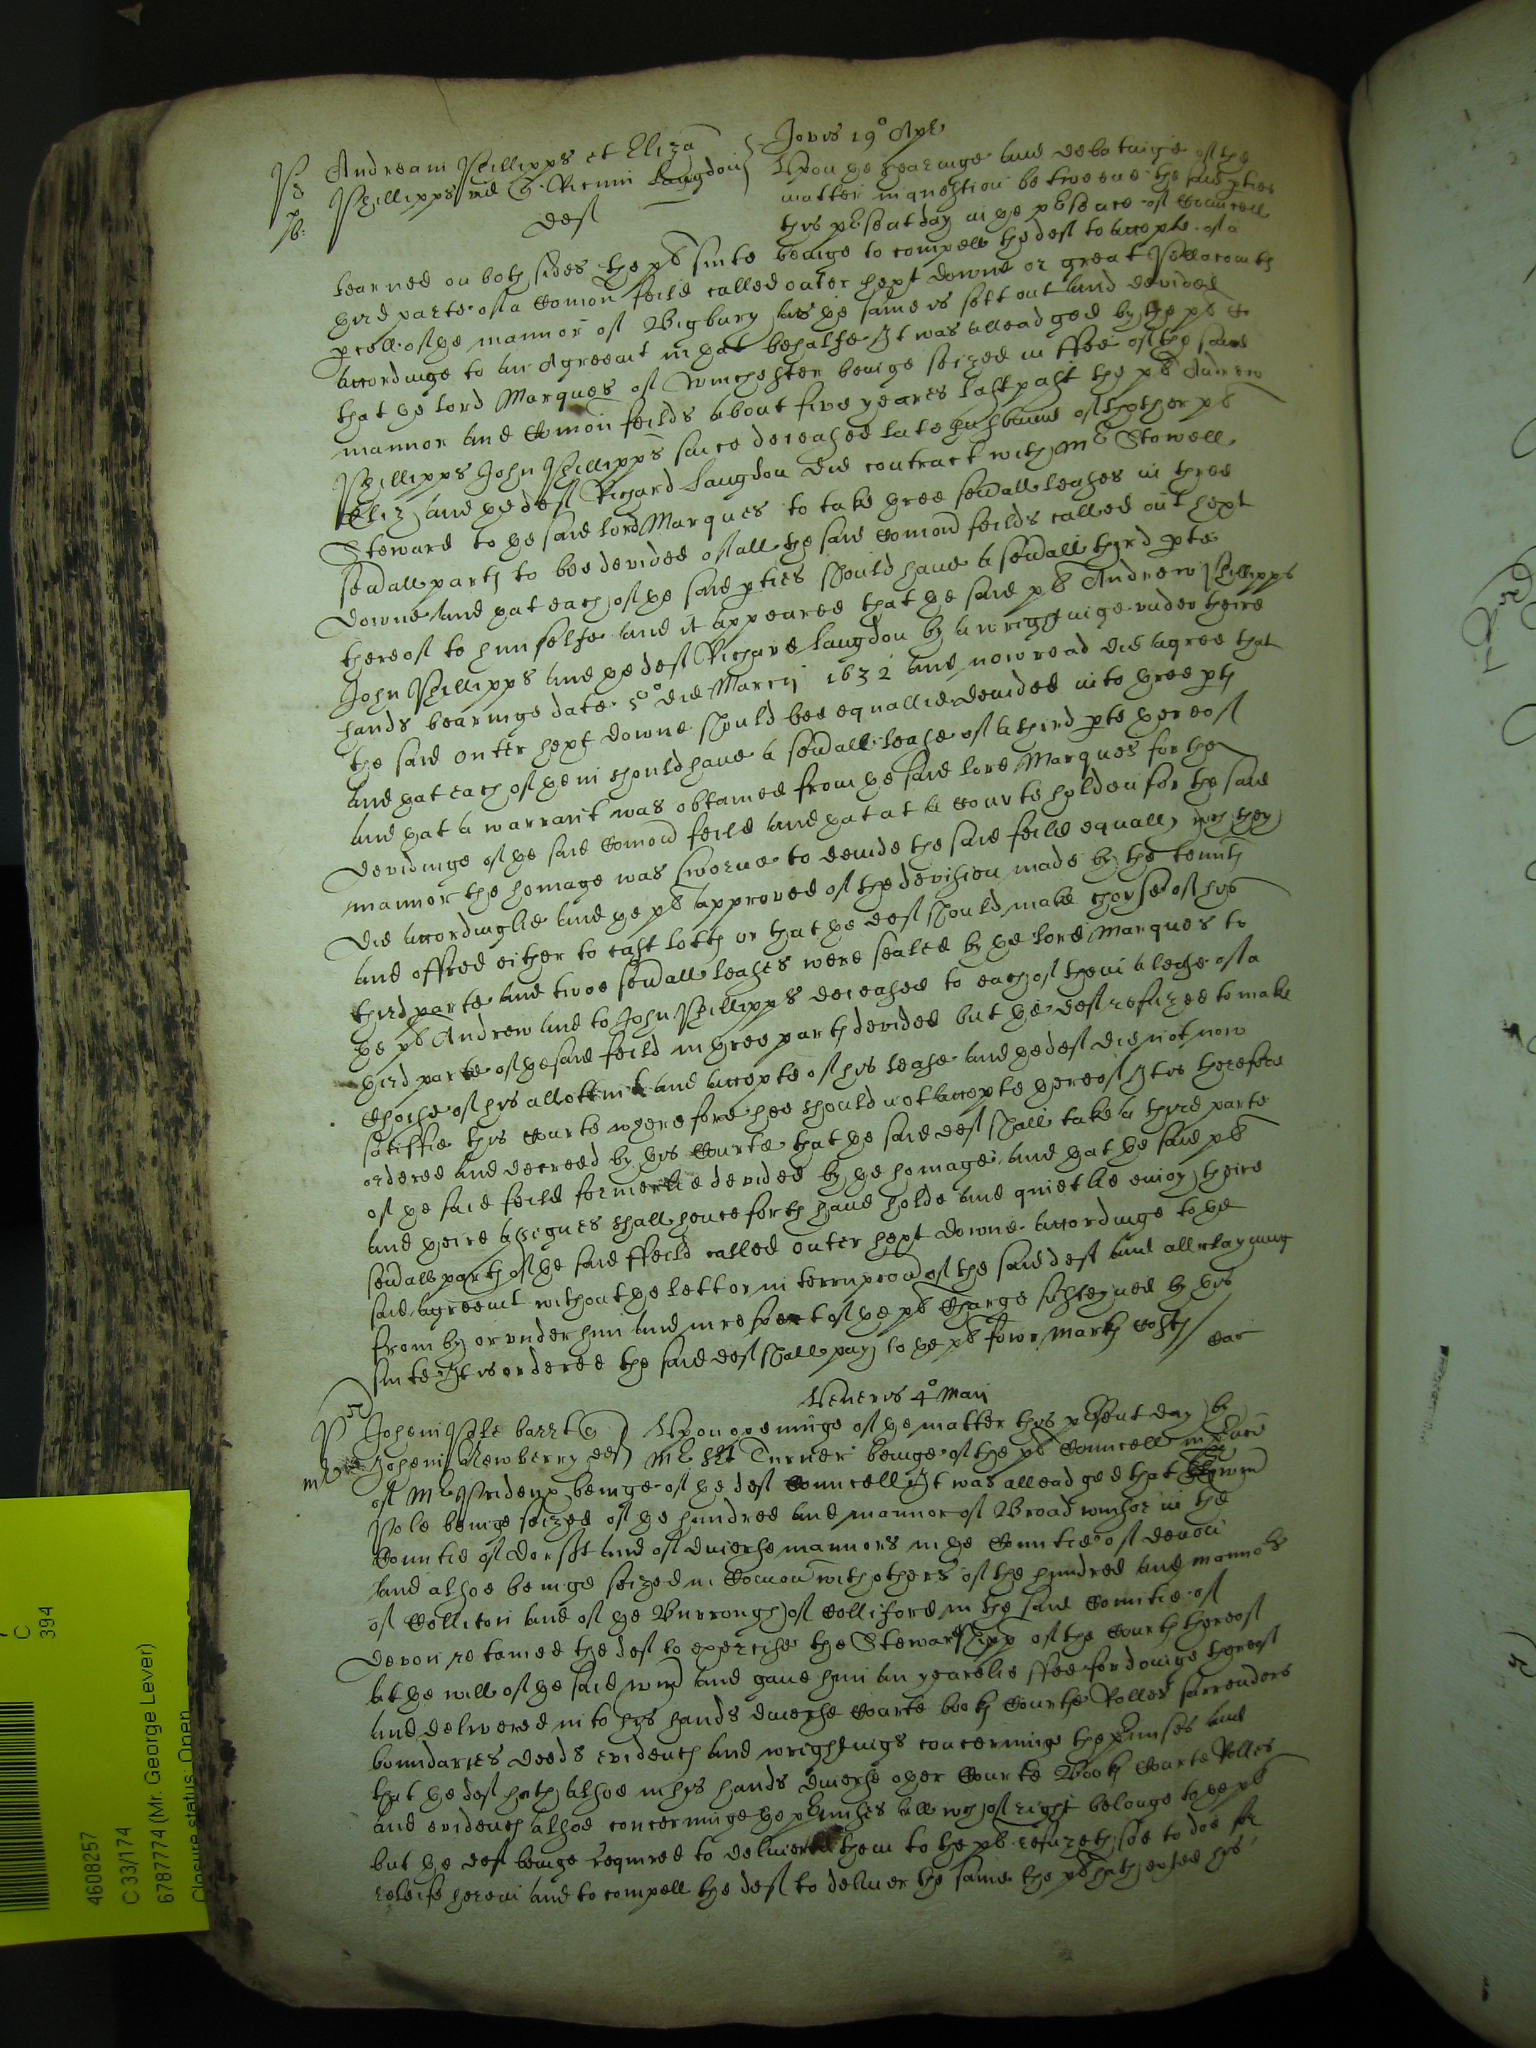 Jovis 19° Apr
Andream Phillipps et Eliza
Phillipps vid Ricum Langdon
def
Upon the hearinge and debatinge of the
matter in question betweene the said pties
this pnt day in the pnce of Councell
learned on both sides the pl suite beinge to compell the def to accepte of a
third parte of a Comon feild called outer hext downe or great
pcell of the mannor of Bigbury as the same is sett out and devided
accordinge to an Agreemt in that behalfe It was alleadged by the pl
that the lord Marques of Winchester beinge seized in ffee of the said
mannor and Comon feilds about five yeares last past the pl Andrew
Phillipps John Phillipps since deceased late husband of thother pl
Eliz and the def Richard Langdon did contract with Mr Stowell
Steward to the said lord Marques to take three sevall leases in three
sevall parts to bee devided of all the said Comon feilds called out hext
downe and that each of the said pties should have a sevall third pte
thereof to himselfe and it appeared that the said pl Andrew Phillipps
John Phillipps and the def Richard Langdon by a wrightinge under theire
hands bearinge date 5° die Marcij 1632 and now read did agree that
the said outer hext downe should bee equallie devided into three pts
and that each of them should have a sevall lease of a third pte thereof
and that a warrant was obtained from the said lord Marques for the
devidinge of the said Comon feild and that at a Courte holden for the said
mannor the homage was sworne to devide the said feild equally wch they
did accordinglie and the pl approved of the devision made by the tennts
and offred either to cast lotts or that the def should make choyse of his
third parte and twoe sevall leases were sealed by the lord Marques to
the pl Andrew and to John Phillipps deceased to each of them a lease of a
third parte of the said feild in three parts devided but the def refuzed to make
choise of his allottmt and accepte of his lease and the def did not now
satisfie this Courte wherefore hee should not accepte thereof It is therefore
ordered and decreed by this Courte that the said def shall take a third parte
of the said feild formerlie devided by the homage and that the said pl
and theire assignes shall henceforth have holde and quietlie enioy theire
sevall parts of the said ffeild called outer hext downe accordinge to the
said agreemt without the lett or interrupcon of the said def and all clayming
from by or under him and in respect of the pl Charge susteyned by this
suite It is ordered the said def shall pay to the pl fowr marks Costs
Veneris 4° Maii
Johem Pole barrt
Johem Newberry def
Upon openinge of the matter this pnt day by
Mr Sst Turner beinge of the pl Councell in pnce
of Mr Prideux beinge of the def Councell It was alleadged that
Pole beinge seized of the hundred and mannor of Broad winsor in the
Countie of Dorset and of diverse mannors in the Countie of devon
and alsoe beinge seized in Comon with others of the hundred and mannors
of Colliton and of the Burrough of Colliford in the said Countie of
devon retained the def to exercise the Stewardshipp of the Courts thereof
at the will of the said and gave him an yearelie ffee for doinge thereof
and delivered into his hands diverse Courte books Courte Rolles surrenders
boundaries deeds evidences and wrightings concerninge the pmisses and
that the def hath alsoe in his hands diverse other Courte Books Courte Rolles
and evidences alsoe concerninge the pmisses all wch of right belonge to the pl
but the def beinge required to deliver them to the pl refuzeth soe to doe for
releife herein and to compell the def to deliver the same the pl hath exhted his
4608257
C
394
C 33/174
6787774 (Mr. George Lever)
Closure status: Open